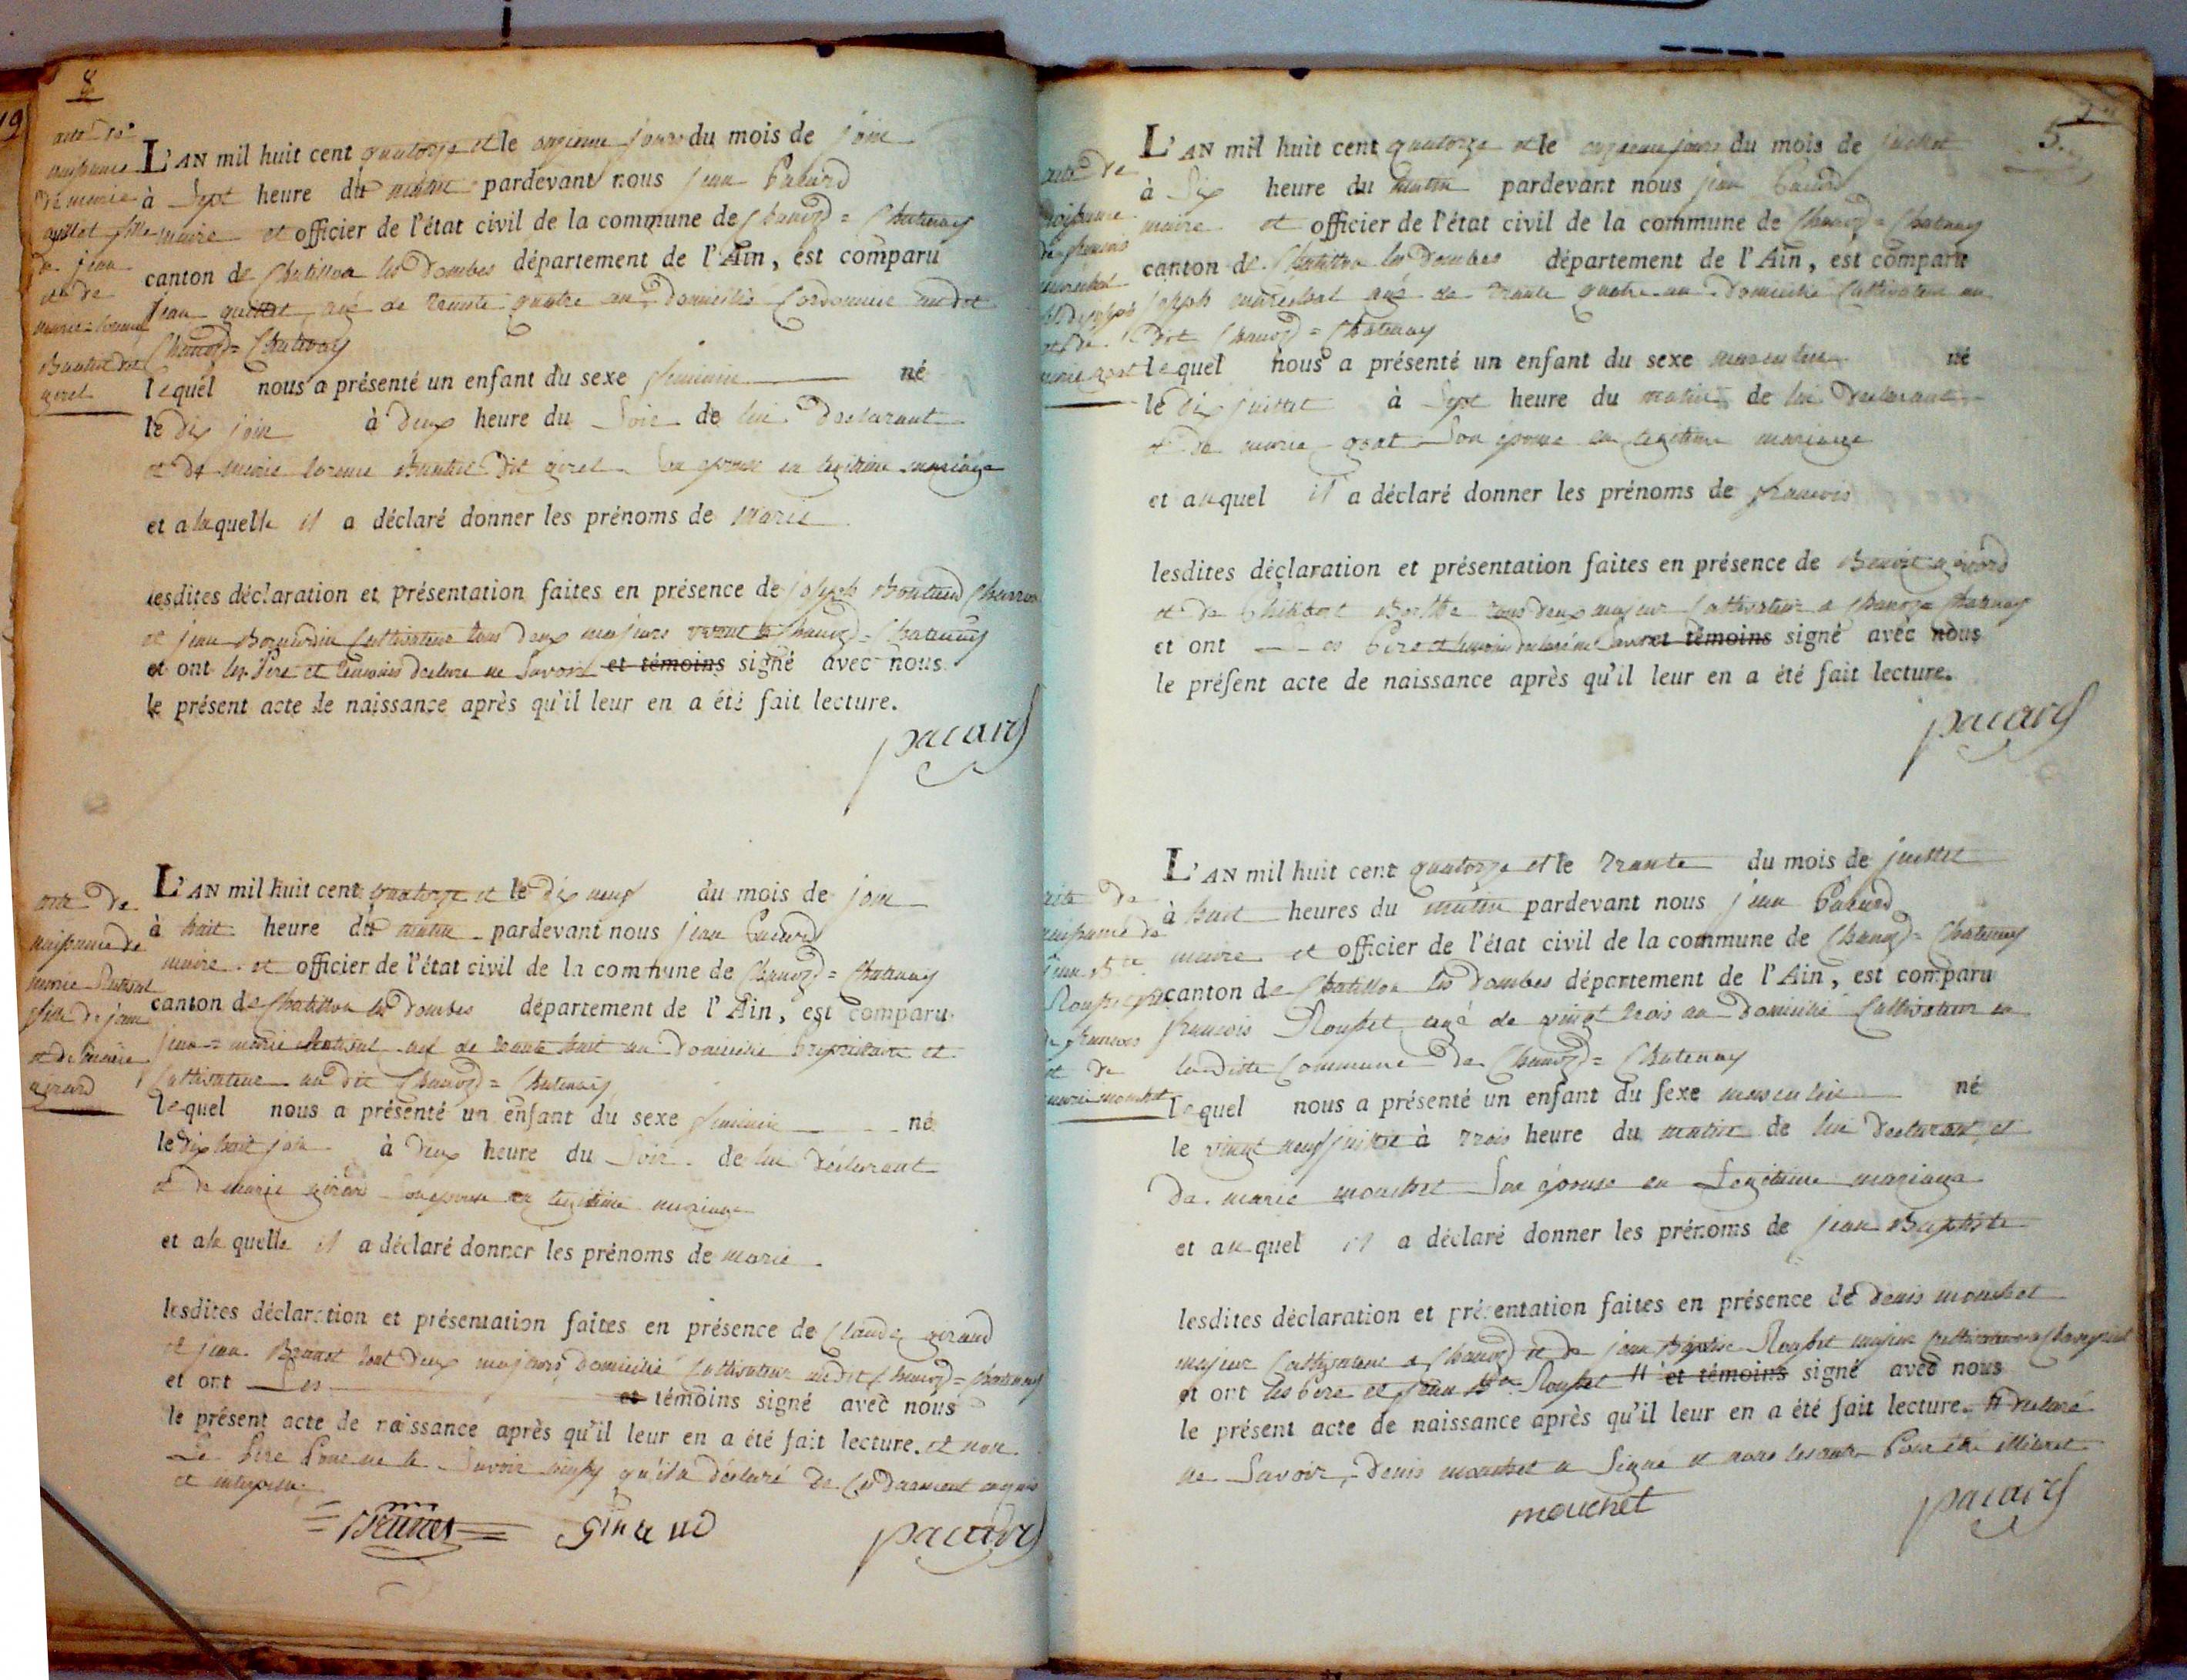 8
acte de
naissance
de marie
quillet fille
de jean
et de
marie lorence
Buathié dit
girel
L'AN mil huit cent quatorze et le onzieme jour du mois de join
à Sept heure du matin pardevant nous jean Pacard
maire et officier de l'état civil de la commune de Chanoz = Chatenay
canton de Chatillon les Dombes département de l'Ain, est comparu
jean age de trante quatre an Domicilié Cordonnier audit
Chanoz = Chatenay
lequel nous a présenté un enfant du sexe feminin né
le dix join à deux heure du Soir de lui declarant
et de marie lorence dit girel Son epouse en legitime mariage
et a laquelle il a déclaré donner les prénoms de Marie
lesdites déclaration et présentation faites en présence de joseph
et jean Cultivateur tous deux majeurs Chanoz = Chatenay
et ont les Pere et temoins declare ne Savoir et témoins signé avec nous
le présent acte de naissance après qu'il leur en a été fait lecture.
pacard
acte de
naissance de
marie
fille de jean
et de marie
girard
L'AN mil huit cent quatorze et le dix neuf du mois de join
à huit heure du matin pardevant nous jean Pacard
maire et officier de l'état civil de la commune de Chanoz = Chatenay
canton de Chatillon les Dombes département de l'Ain, est comparu
jean = marie agé de trante huit an Domicilié Proprietaire et
Cultivateur au dit Chanoz = Chatenay
lequel nous a présenté un enfant du sexe feminin né
le dix huit join à deux heure du Soir de lui déclarant
et de marie girard Son epouse en legitime mariage
et a la quelle il a déclaré donner les prénoms de marie
lesdites déclaration et présentation faites en présence de Claude giraud
et jean Brunet tout deux majeurs Domicilié Cultivateur audit Chanoz = Chatenay
et ont Les et témoins signé avec nous
le présent acte de naissance après qu'il leur en a été fait lecture. et non
Le Pere Pour ne le Savoir qu'il a déclaré de Ce
et
Brunet giraud pacard
5.
acte de
naissance
de francois
maréchal
fils de joseph
et de
marie
L'AN mil huit cent quatorze et le onzieme jour du mois de juillet
à Six heure du matin pardevant nous jean Pacard
maire et officier de l'état civil de la commune de Chanoz = Chatenay
canton de Chatillon les Dombes département de l'Ain, est comparu
joseph maréchal agé de trante quatre an Domicilié Cultivateur au
dit Chanoz = Chatenay
lequel nous a présenté un enfant du sexe masculin né
le dix juillet à Sept heure du matin de lui declarant
et de marie Son epouse en legitime mariage
et auquel il a déclaré donner les prénoms de francois
lesdites déclaration et présentation faites en présence de Benoit girard
et de Philibert Berthe tous deux majeur Cultivateur a Chanoz Chatenay
et ont es Pere et temoin declaré ne Savoir et témoins signé avec nous
le présent acte de naissance après qu'il leur en a été fait lecture.
pacard
acte de
naissance de
jean Bte
Rousset fils
de francois
et de
marie mouchet
L'AN mil huit cent quatorze et le trante du mois de juillet
à huit heures du matin pardevant nous jean Pacard
maire et officier de l'état civil de la commune de Chanoz = Chatenay
canton de Chatillon les Dombes département de l'Ain, est comparu
francois Rousset agé de vingt trois an Domicilié Cultivateur en
laditte Commune de Chanoz = Chatenay
lequel nous a présenté un enfant du sexe masculin né
le vingt neuf juillet à trois heure du matin de lui declarant et
de marie mouchet Son épouse en Legitime mariage
et auquel il a déclaré donner les prénoms de jean Baptiste
lesdites déclaration et présentation faites en présence de denis mouchet
majeur Cultivateur a Chanoz et de jean Baptiste Rousset majeur Cultivateur a
et ont les Pere et jean Bte Rousset # et témoins signé avec nous
le présent acte de naissance après qu'il leur en a été fait lecture. # declaré
ne Savoir, Denis mouchet a Signé et non les autre Pour être illiteret
mouchet pacard